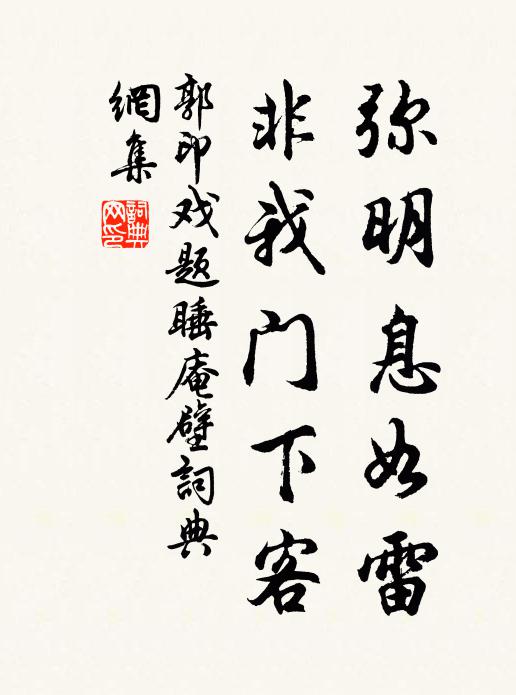 弥明息如雷
非我门下客
郭印戏题睡庵壁詞典
網集
詞典
网印